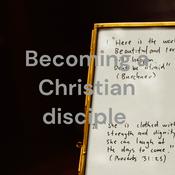 Becoming a
Christian
disciple
"Here is the
Beautiful and
happen
Don't be afraid"
(Buechner)
"She is clothed with
strength and dignity
She can laugh at
the days to come."
(Proverbs 31:25)